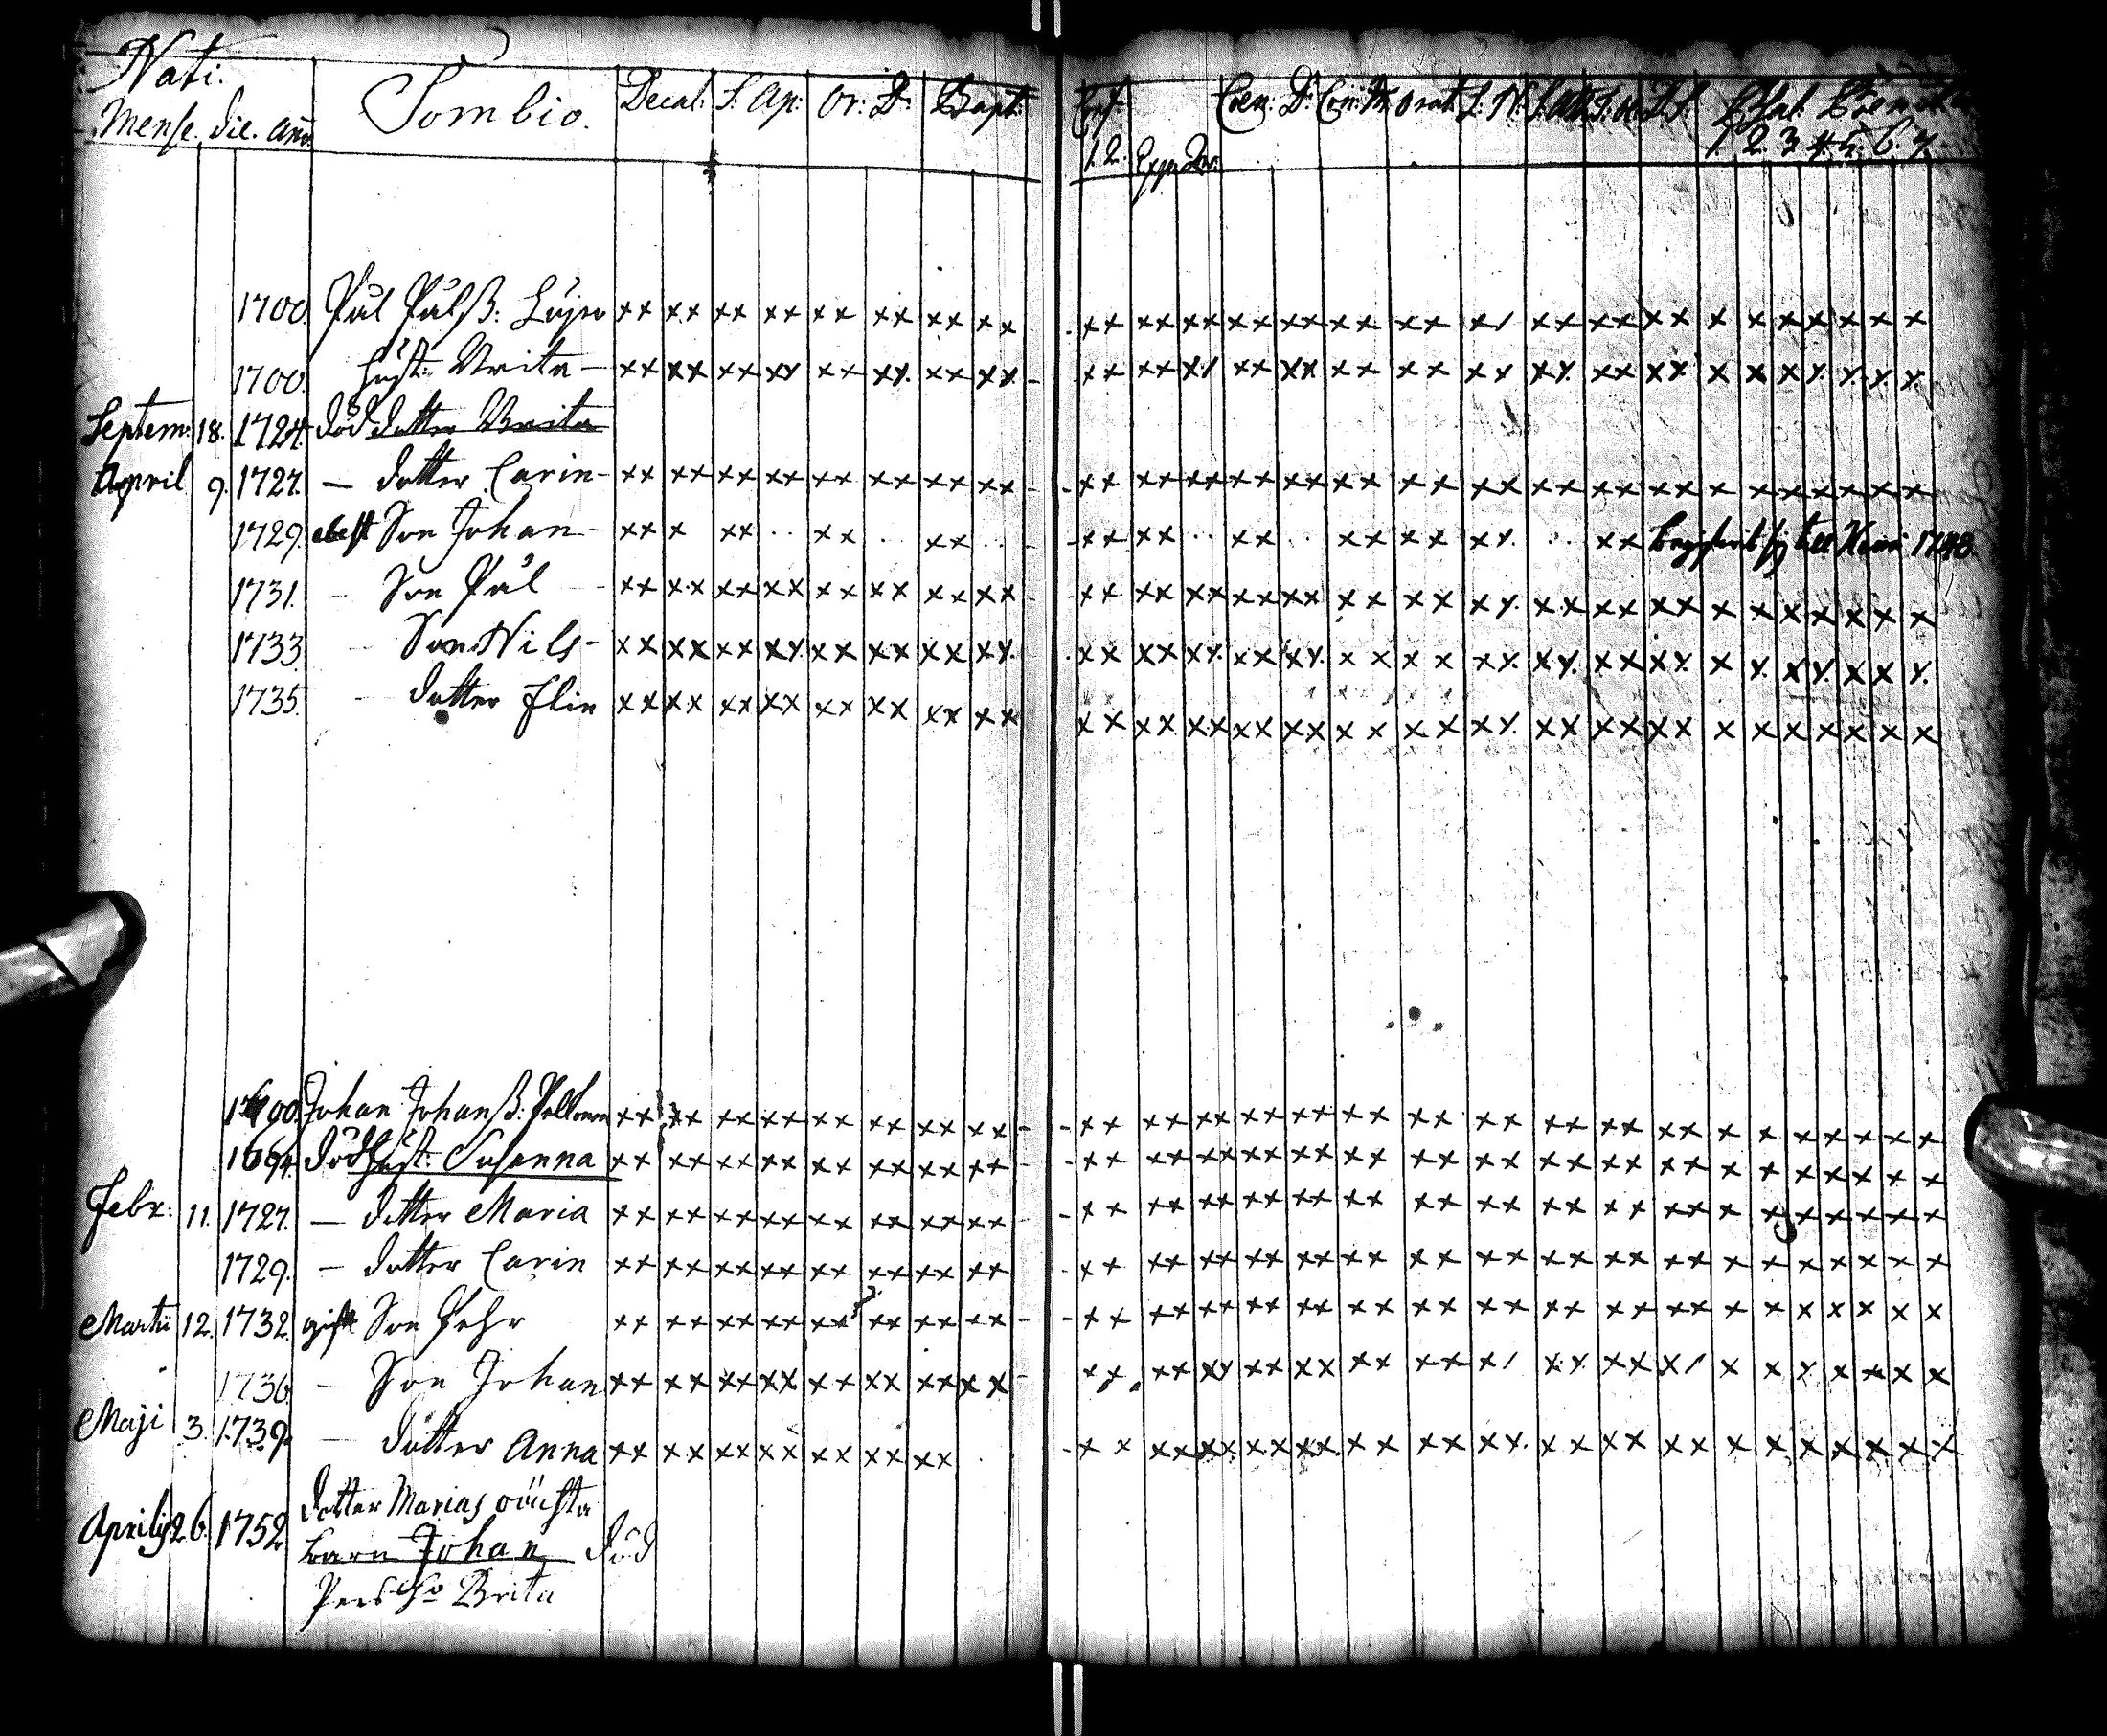 Nati.
Mense. die. año.
Sombio.
Decal: S: Ap: Or: D: Bapt:
1. 2.
Coen: D: Orat:
1. 2. 3. 4. 5. 6. 7.
1700. Pål Pålß:
xx xx xx xx xx xx xx xx xx xx xx xx xx xx xx x/ xx xx xx x x x x x x x
1700. Hust: Brita -
xx xx xx xx xx xx xx xx xx xx xx xx xx xx xx xx xx xx xx x x x x x x x
Septem: 18. 1724. död dotter Brita
April 9. 1727. - dotter Carin -
xx xx xx xx xx xx xx xx xx xx xx xx xx xx xx xx xx xx xx x x x x x x x
1729. Son Johan -
xx x xx .. xx . xx .. xx xx .. xx .. xx xx xx .. xx 1748.
1731. - Son Pål
xx xx xx xx xx xx xx xx xx xx xx xx xx xx xx xx xx xx xx x x x x x x x
1733. - Son Nils -
xx xx xx xx xx xx xx xx xx xx xx xx xx xx xx xx xx xx xx x x x x x x x
1735. - dotter Elin
xx xx xx xx xx xx xx xx xx xx xx xx xx xx xx xx xx xx xx x x x x x x x
Johan Johanß:
xx xx xx xx xx xx xx xx xx xx xx xx xx xx xx xx xx xx xx x x x x x x x
1694. död Hust: Susanna
xx xx xx xx xx xx xx xx xx xx xx xx xx xx xx xx xx xx xx x x x x x x x
Febr: 11. 1727. - dotter Maria
xx xx xx xx xx xx xx xx xx xx xx xx xx xx xx xx xx xx xx x x x x x x x
1729. - dotter Carin
xx xx xx xx xx xx xx xx xx xx xx xx xx xx xx xx xx xx xx x x x x x x x
Martii 12. 1732. gift Son Pehr
xx xx xx xx xx xx xx xx xx xx xx xx xx xx xx xx xx xx xx x x x x x x x
1736. - Son Johan
xx xx xx xx xx xx xx xx xx xx xx xx xx xx xx x/ xx xx x/ x x x x x x x
Maji 3. 1739. - dotter Anna
xx xx xx xx xx xx xx xx xx xx xx xx xx xx xx xx xx xx x x x x x x x
dotter Marias oächta
Aprilis 26. 1752. barn Johan död
Pers Brita